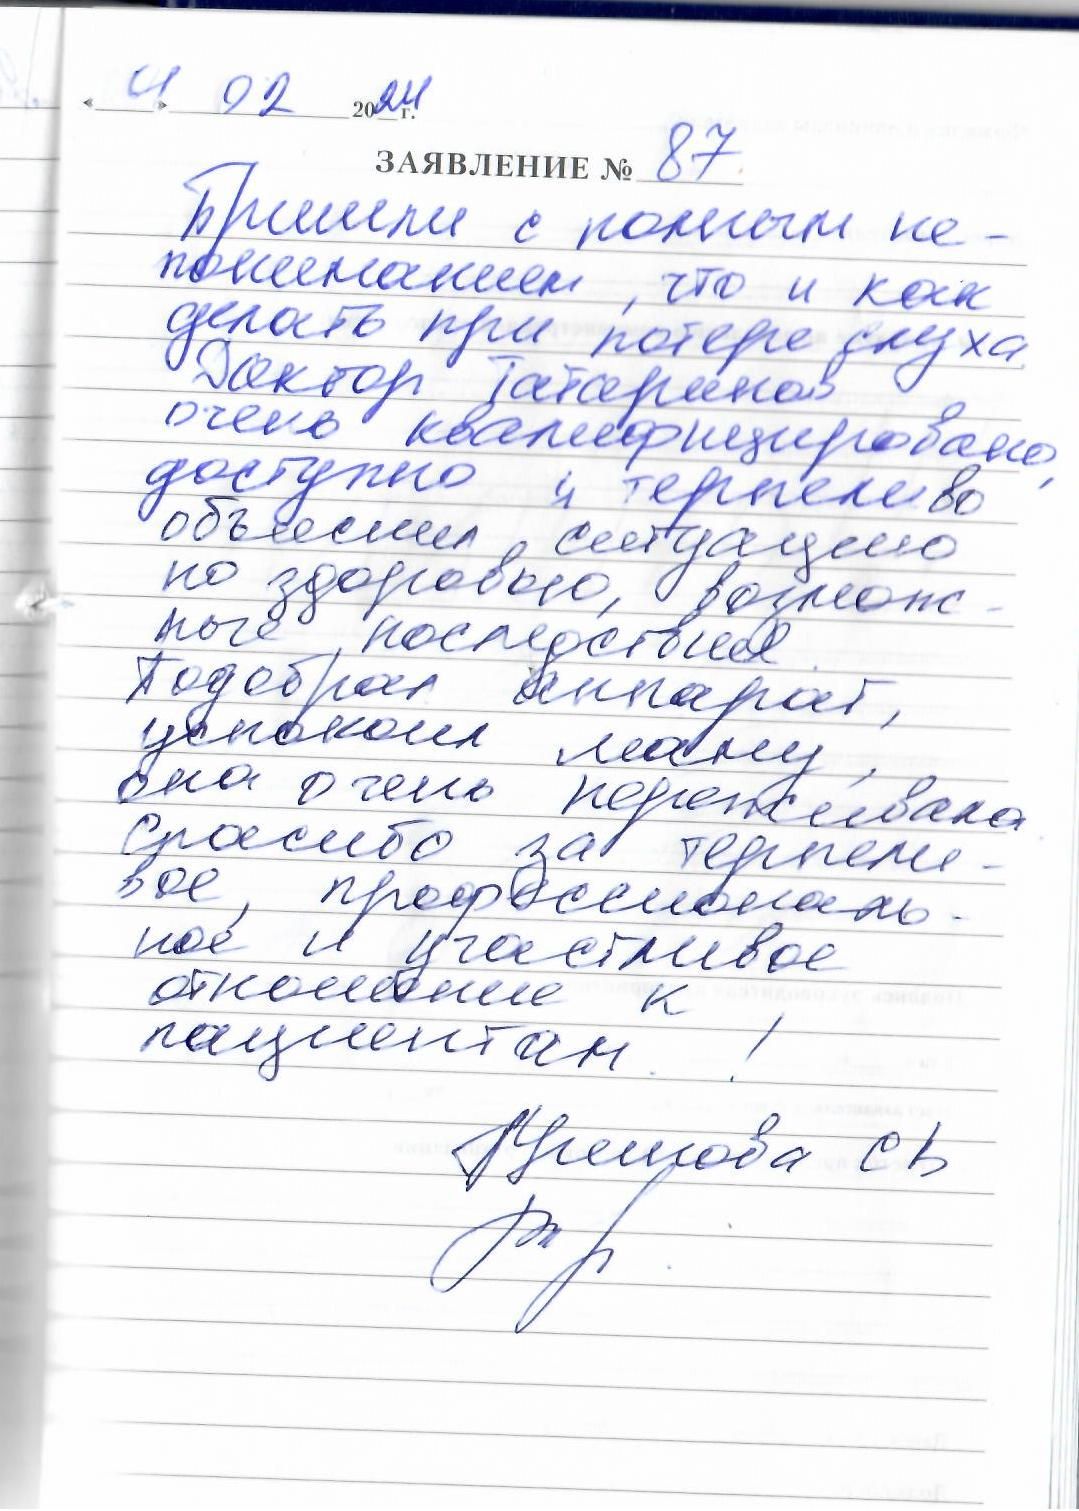 «4» 02 2024 г.
ЗАЯВЛЕНИЕ № 87
Пришли с полным не-
пониманием, что и как
делать при потере слуха
Доктор Татаринов
очень квалифицировано,
доступно и терпеливо
объяснил ситуацию
по здоровью, возмож-
ные последствия.
Подобрал аппарат,
успокоил маму,
она очень переживала
Спасибо за терпели-
вое, профессиональ-
ное и участливое
отношение к
пациентам !
СВ